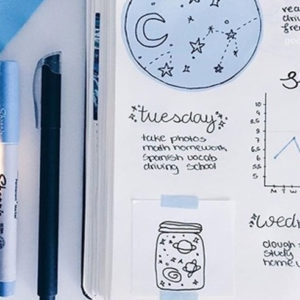 tuesday
take photos
math homework
spanish vocab
driving school
rea
driv
6
5
M T W
Wedn
dough
study
homew
Sharpie